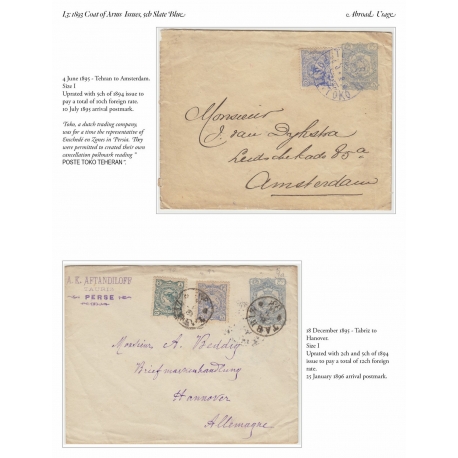 L3: 1893 Coat of Arms Issues, 5ch Slate Blue
Abroad Usage
4 June 1895 - Tehran to Amsterdam.
Size I
Uprated with 5ch of 1894 issue to
pay a total of 10ch foreign rate.
10 July 1895 arrival postmark.
Toko, a dutch trading company,
was for a time the representative of
Enschedé en Zonen in "Persia. They
were permitted to created their own
cancellation postmark reading "
POSTE TOKO TEHERAN".
TOKO
Monsieur
J. van Dijkstra
Amsterdam
A. K. AFTANDILOFF
TAURIS
PERSE
Monsieur A. Beddig
Briefmarkenhandlung
Hannover
Allemagne
18 December 1895 - Tabriz to
Hanover.
Size I
Uprated with 2ch and 5ch of 1894
issue to pay a total of 12ch foreign
rate.
25 January 1896 arrival postmark.